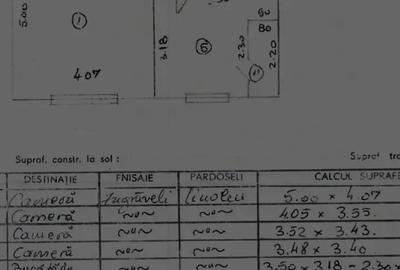 5.00
1
4.07
3.18
5
2.30
80
80
2.20
Supraf. constr. la sol :
DESTINAȚIE FNISAIE PARDOSELI
Cameră zugrăveli linoleu 5.00 × 4.07
Cameră ~"~ ~"~ 4.05 × 3.55.
Cameră ~"~ ~"~ 3.52 × 3.43.
Cameră ~"~ ~"~ 3.48 × 3.40.
3.50 × 3.18 - 2.30 ×